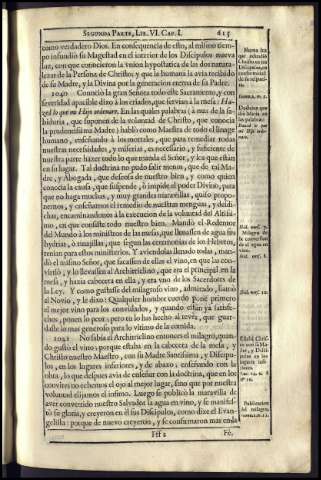 SEGUNDA PARTE, LIB. VI. CAP. I. 615
como verdadero Dios. En consequencia de esto, al mismo tiem-
po infundiò su Magestad en el interior de los Discipulos nueva
luz, con que conocieron la vnion hypostatica de las dos natura-
lezas de la Persona de Christo; y que la humana la avia recibido
de su Madre, y la Divina por la generacion eterna de su Padre.
1040 Conociò la gran Señora todo este Sacramento, y con
severidad apacible dixo à los criados, que servian à la mesa: Ha-
zed lo que mi Hijo ordenare. En las quales palabras (à mas de la sa-
biduria, que suponen de la voluntad de Christo, que conocia
la prudentissima Madre) hablò como Maestra de todo el linage
humano, enseñando à los mortales, que para remediar todas
nuestras necessidades, y miserias, es necessario, y suficiente de
nuestra parte hazer todo lo que manda el Señor, y los que estàn
en su lugar. Tal doctrina no pudo salir menos, que de tal Ma-
dre, y Abogada, que deseosa de nuestro bien, y como quien
conocia la causa, que suspende, ò impide el poder Divino, para
que no haga muchas, y muy grandes maravillas, quiso propo-
nernos, y enseñarnos el remedio de nuestras menguas, y desdi-
chas, encaminandonos à la execucion de la voluntad del Altissi-
mo, en que consiste todo nuestro bien. Mandò el Redemtor
del Mundo à los ministros de las mesas, que llenassen de agua sus
hydrias, ò tinajillas, que segun las ceremonias de los Hebreos,
tenian para estos ministerios. Y aviendolas llenado todas, man-
dò el mismo Señor, que sacassen de ellas el vino, en que la con-
virtiò, y lo llevassen al Architriclino, que era el principal en la
mesa, y hazia cabecera en ella, y era vno de los Sacerdotes de
la Ley. Y como gustasse del milagroso vino, admirado, llamò
al Novio, y le dixo: Qualquier hombre cuerdo pone primero
el mejor vino para los convidados, y quando estàn ya satisfe-
chos, ponen lo peor; pero tu lo has hecho al revès, que guar-
daste lo mas generoso para lo vltimo de la comida.
1041 No sabia el Architriclino entonces el milagro, quan-
do gustò el vino; porque estaba en la cabecera de la mesa, y
Christo nuestro Maestro, con su Madre Santissima, y Discipu-
los, en los lugares inferiores, y de abaxo; enseñando con la
obra, lo que despues avia de enseñar con la doctrina, que en los
convites no echemos el ojo al mejor lugar, sino que por nuestra
voluntad elijamos el infimo. Luego se publicò la maravilla de
aver convertido nuestro Salvador la agua en vino, y se manifes-
tò su gloria, y creyeron en èl sus Discipulos, como dize el Evan-
gelista; porque de nuevo creyeron, y se confirmaron mas en la
Fff 2 Fè.